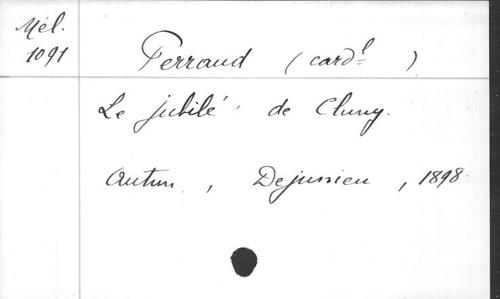 Mél.
1091
Perraud (card.l)
Le jubilé de Cluny.
Autun, Dejussieu, 1898